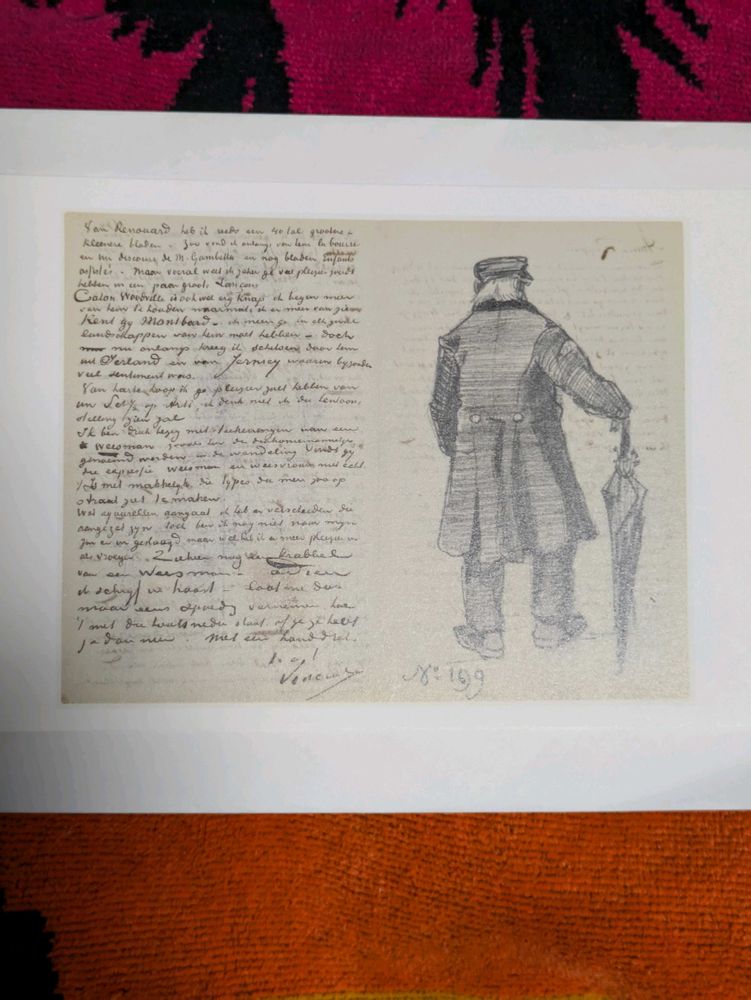 Van Renouard heb ik reeds een 40 tal grootere &
kleinere bladen. Zoo vond ik onlangs van hem la bourse
en un discours de M. Gambetta en nog bladen Enfants
assistés. Maar vooral wat ik zeker ge veel plezier zoudt
hebben in een paar groote Lançons
Caton Woodville is ook wel erg knap, ik begin meer
van hem te houden naarmate ik er meer van zie en
Kent gij Montbard. ik meen ge in elk geval
landschappen van hem moet hebben. Doch
nu onlangs kreeg ik schetsen door hem
uit Ierland en van Jersey waaren bijzonder
veel sentiment was.
Van harte hoop ik ge pleizier zult hebben van
uw op Arti, ik denk niet ik die tentoon,
stelling zien zal.
Ik ben druk bezig met teekeningen van een
weesman zooals hier de diakoniemannetjes
genoemd worden in de wandeling Vindt gij
die expressie weesman en weesvrouw niet echt.
't Is niet makkelijk die types die men zoo op
straat ziet te maken.
Wat aquarellen aangaat ik heb er verscheiden die
aangezet zijn. toch ben ik nog niet naar mijn
zin er in geslaagd maar wel heb ik er meer pleizier in
als vroeger. Ziehier nog een krabbel
van een Weesman – adieu
ik schrijf in haast – laat me dus
maar eens spoedig vernemen hoe
't met die houtsneden staat of ge ze hebt
ja dan neen. Met een handdruk.
t. à t.
Vincent
N° 199